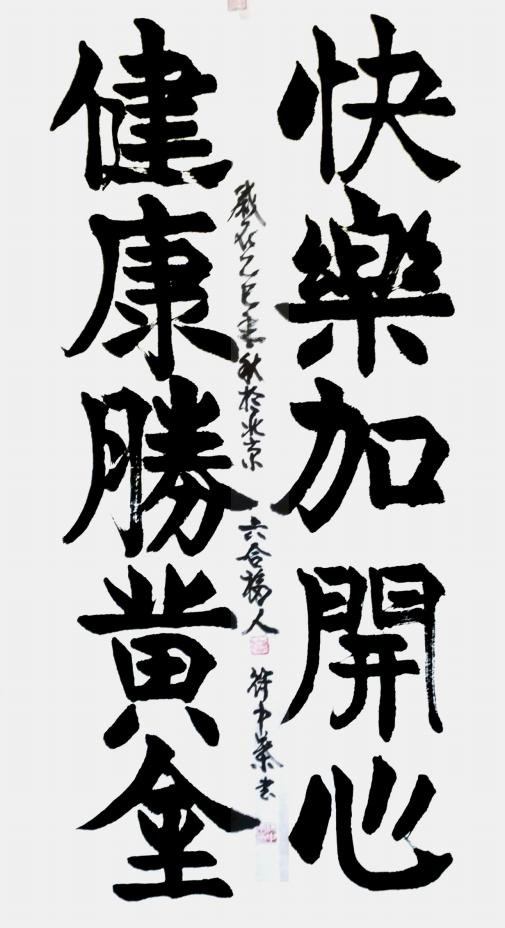 快樂加開心
健康勝黃金
歲在乙巳春秋於北京
六合福人
符中業书